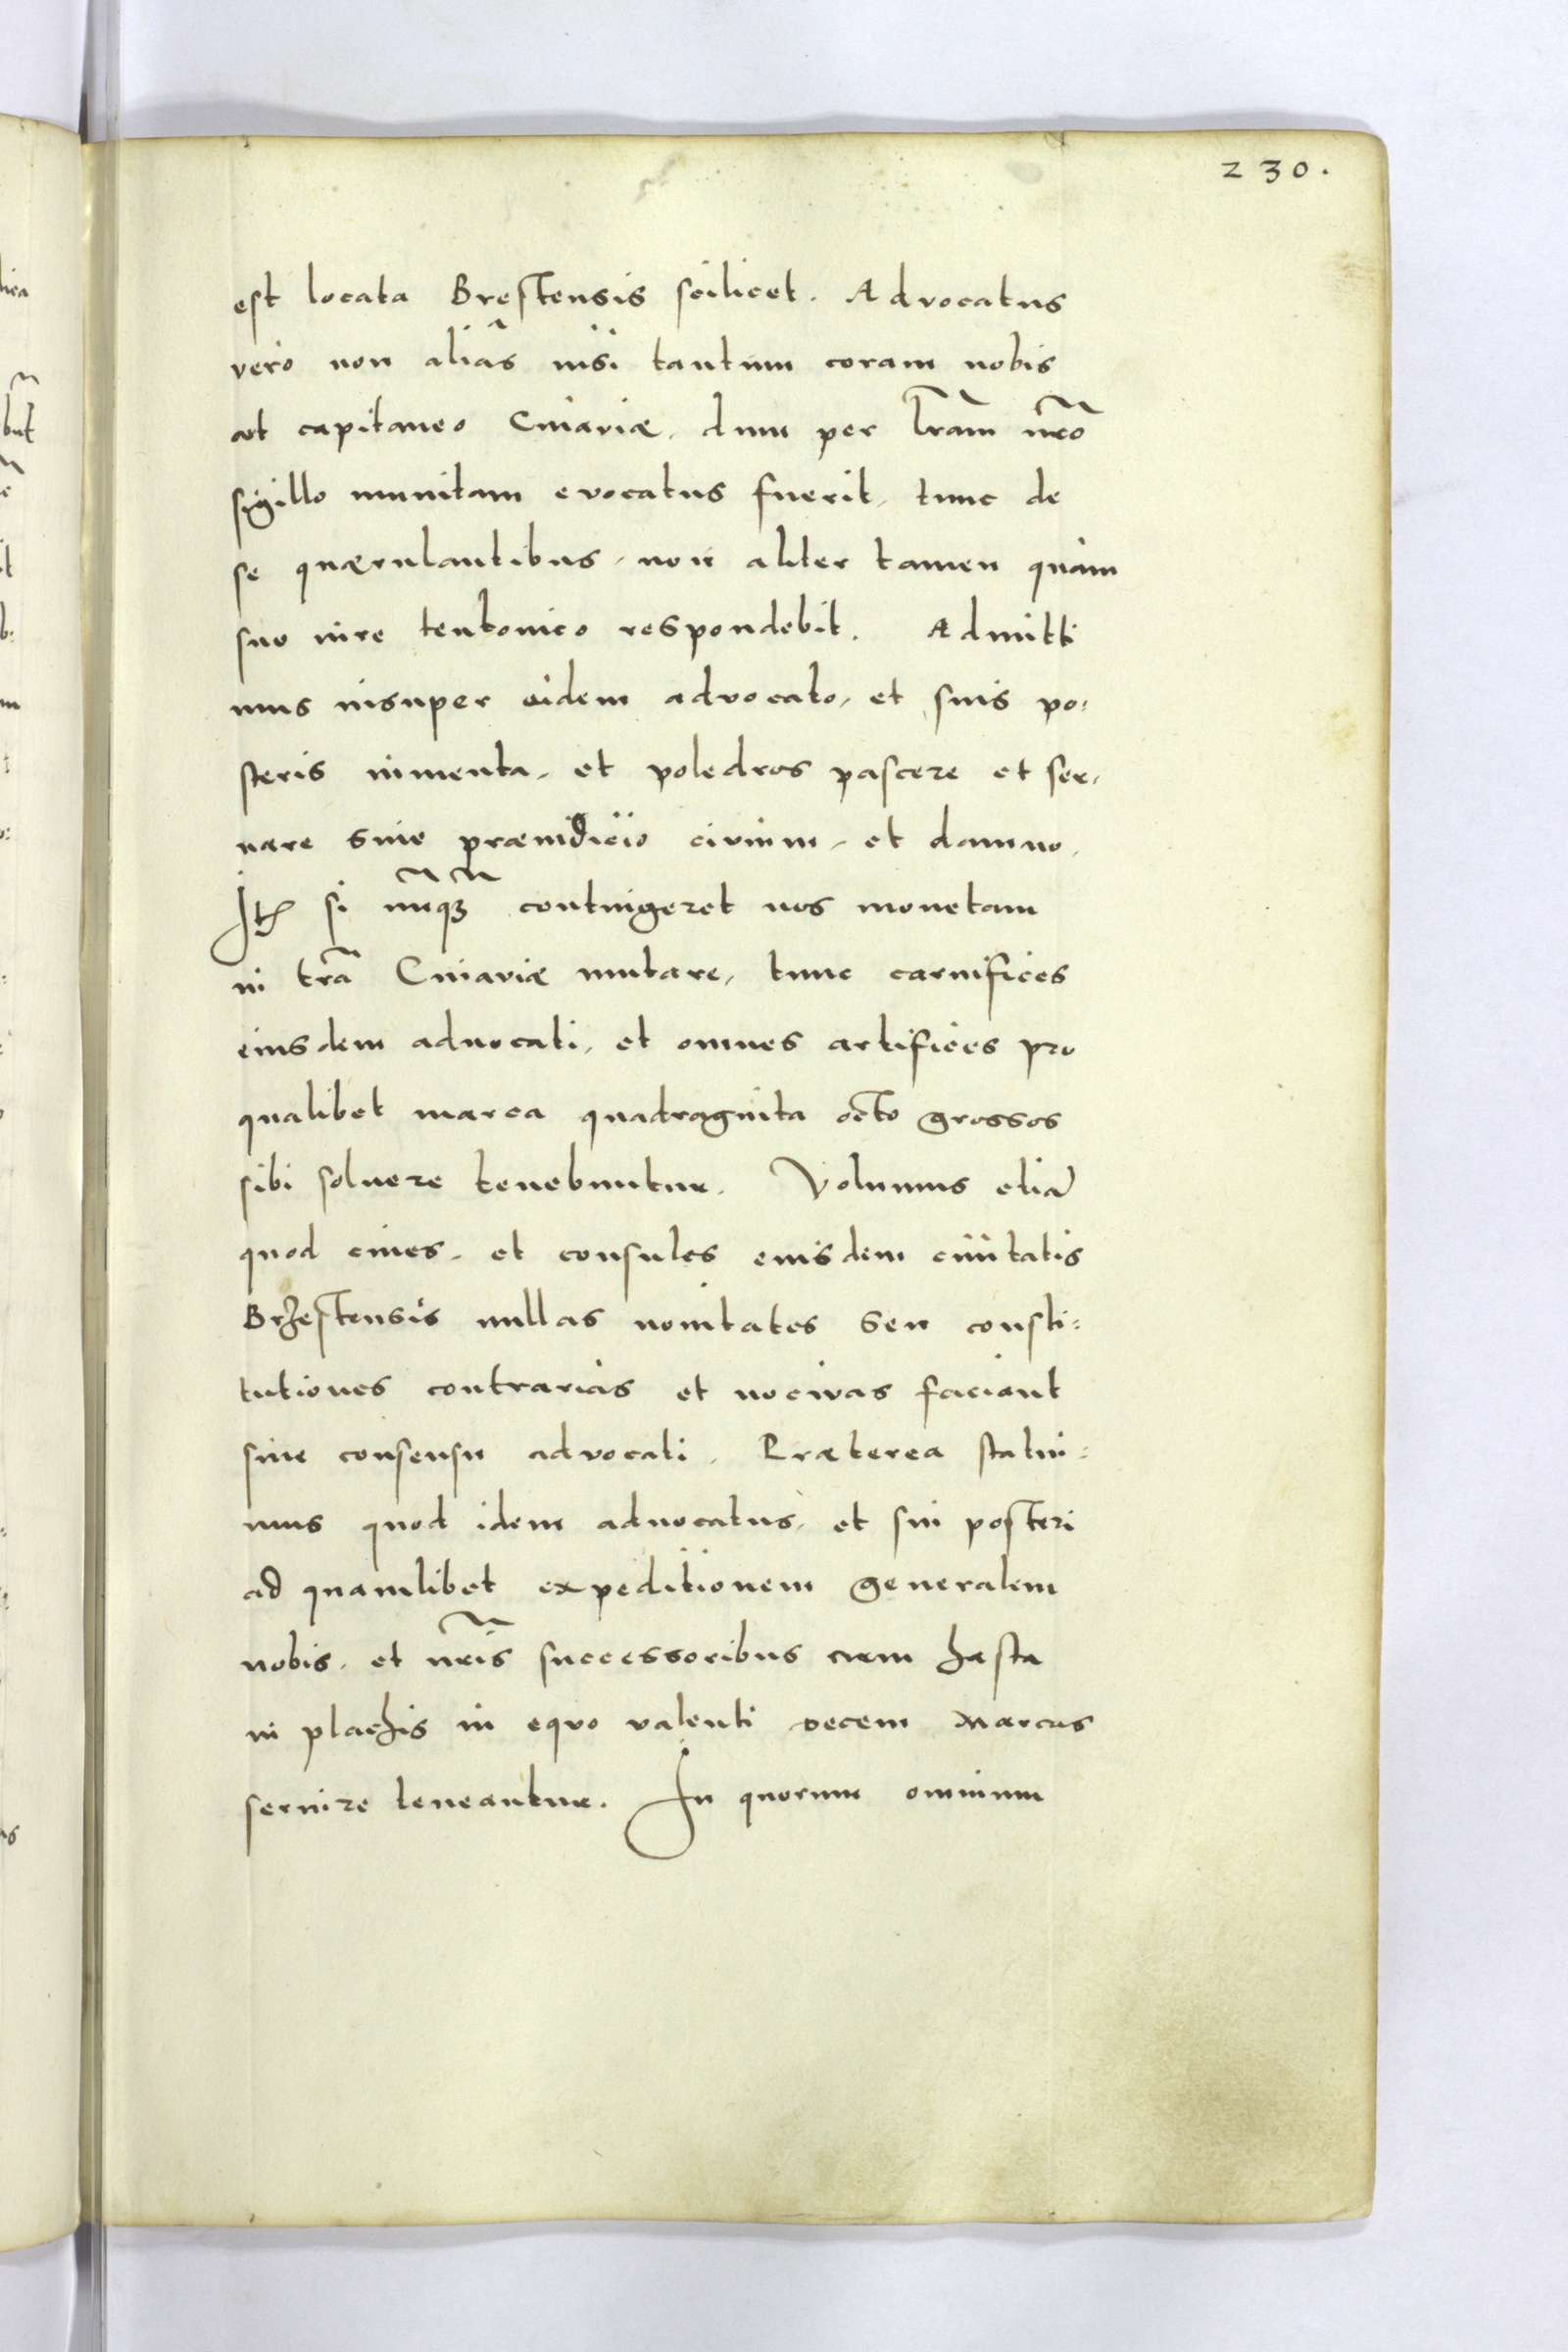 230.
est locata Brestensis scilicet. Advocatus
vero non aliâs nisi tantum coram nobis
aut capitaneo Cuiaviæ, dum per lr̃am nr̃o
sigillo munitam evocatus fuerit, tunc de
se quærulantibus, non aliter tamen quàm
suo iure teutonico respondebit. Admitti
mus insuper eidem advocato, et suis po:
steris iumenta, et poledros pascere et ser,
uare sine præiudicio civium, et damno.
Itẽ si unq̃ contingeret nos monetam
in tr̃a Cuiaviæ mutare, tunc carnifices
eiusdem aduocati, et omnes artifices pro
qualibet marca quadraginta octo grossos
sibi soluere tenebuntur. Volumus etiã
quod ciues, et consules eiusdem ciuitatis
Brzestensis nullas nouitates seu consti:
tutiones contrarias et nocivas faciant
sine consensu advocati. Præterea statui:
mus quod idem aduocatus, et sui posteri
ad quamlibet expeditionem generalem
nobis, et nr̃is successoribus cum hasta
in plachis in equo valenti decem marcas
seruire teneantur. In quorum omnium